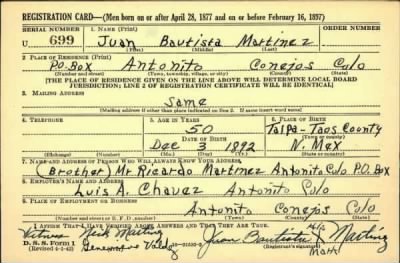 REGISTRATION CARD—(Men born on or after April 28, 1877 and on or before February 16, 1897)
SERIAL NUMBER 1. NAME (Print) ORDER NUMBER
U 699 Juan Bautista Martinez
(First) (Middle) (Last)
2. PLACE OF RESIDENCE (Print)
P.O. Box Antonito Conejos Colo
(Number and street) (Town, township, village, or city) (County) (State)
[THE PLACE OF RESIDENCE GIVEN ON THE LINE ABOVE WILL DETERMINE LOCAL BOARD
JURISDICTION; LINE 2 OF REGISTRATION CERTIFICATE WILL BE IDENTICAL]
3. MAILING ADDRESS
Same
[Mailing address if other than place indicated on line 2. If same insert word same]
4. TELEPHONE 5. AGE IN YEARS 6. PLACE OF BIRTH
50 Talpa-Taos County
DATE OF BIRTH
Dec 3 1892 N. Mex
(Exchange) (Number) (Mo.) (Day) (Yr.) (State or country)
7. NAME AND ADDRESS OF PERSON WHO WILL ALWAYS KNOW YOUR ADDRESS
(Brother) Mr Ricardo Martinez Antonito Colo P.O. Box
8. EMPLOYER'S NAME AND ADDRESS
Luis A. Chavez Antonito Colo
9. PLACE OF EMPLOYMENT OR BUSINESS
Antonito Conejos Colo
(Number and street or R. F. D. number) (Town) (County) (State)
I AFFIRM THAT I HAVE VERIFIED ABOVE ANSWERS AND THAT THEY ARE TRUE.
Witness
D. S. S. Form 1 Juan Bautista X
(Revised 4-1-42) (Registrant's signature) Mark